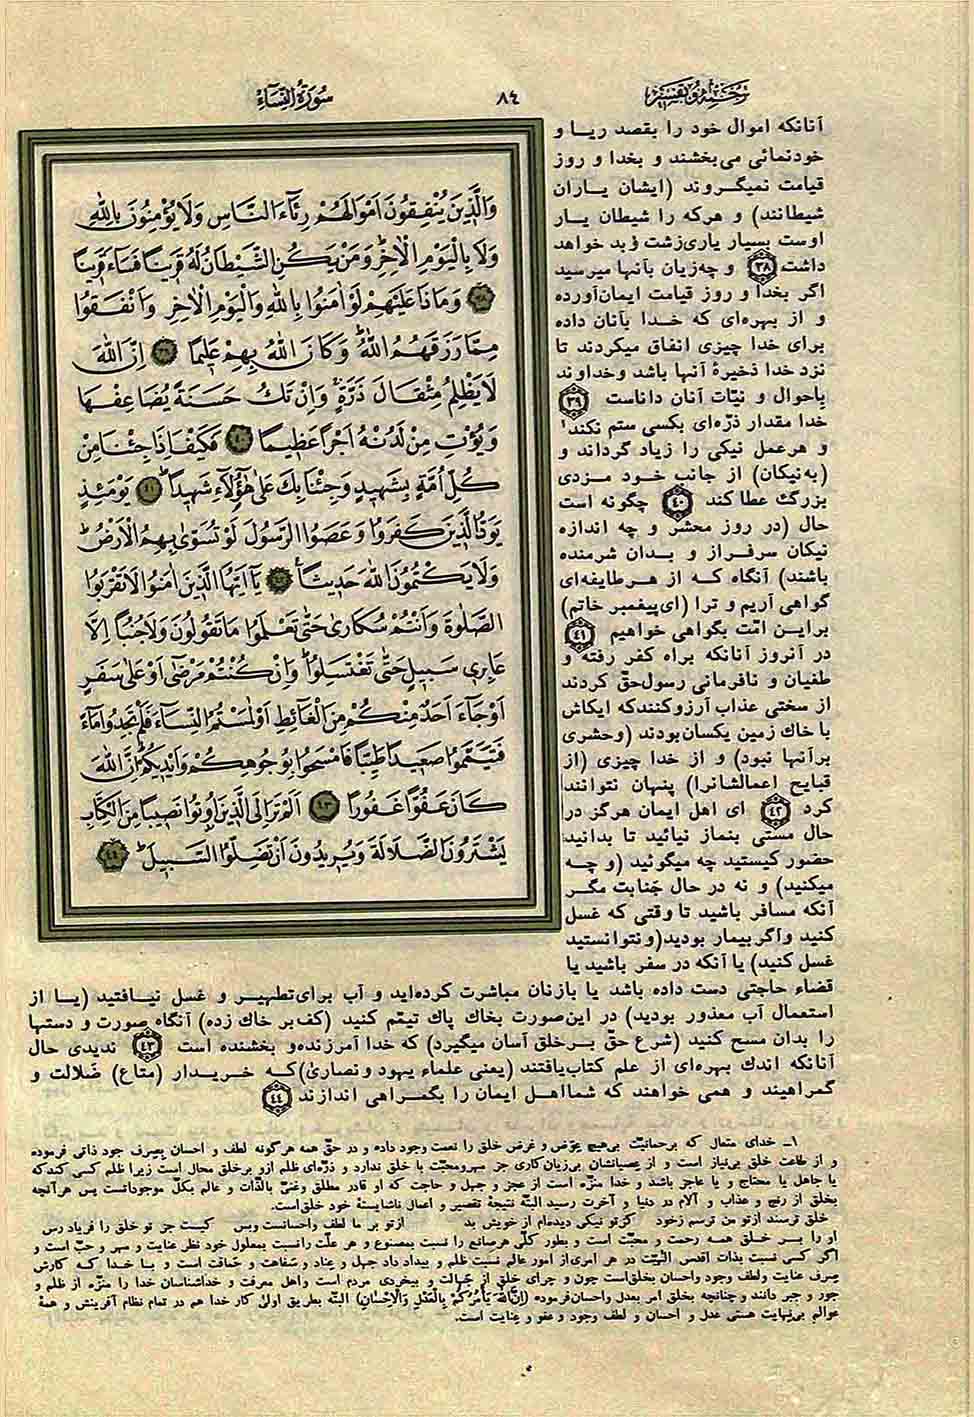 ترجمه و تفسیر
٨٤
سورة النساء
وَالَّذِينَ يُنْفِقُونَ اَمْوَالَهُمْ رِئَآءَ النَّاسِ وَلَا يُؤْمِنُونَ بِاللهِ
وَلَا بِالْيَوْمِ الْاٰخِرِ وَمَنْ يَكُنِ الشَّيْطَانُ لَهُ قَرِينًا فَسَآءَ قَرِينًا
٣٨ وَمَاذَا عَلَيْهِمْ لَوْ اٰمَنُوا بِاللهِ وَالْيَوْمِ الْاٰخِرِ وَاَنْفَقُوا
مِمَّا رَزَقَهُمُ اللهُ وَكَانَ اللهُ بِهِمْ عَلِيمًا ٣٩ اِنَّ اللهَ
لَا يَظْلِمُ مِثْقَالَ ذَرَّةٍ وَاِنْ تَكُ حَسَنَةً يُضَاعِفْهَا
وَيُؤْتِ مِنْ لَدُنْهُ اَجْرًا عَظِيمًا ٤٠ فَكَيْفَ اِذَا جِئْنَا مِنْ
كُلِّ اُمَّةٍ بِشَهِيدٍ وَجِئْنَا بِكَ عَلٰى هٰٓؤُلَآءِ شَهِيدًا ٤١ يَوْمَئِذٍ
يَوَدُّ الَّذِينَ كَفَرُوا وَعَصَوُا الرَّسُولَ لَوْ تُسَوّٰى بِهِمُ الْاَرْضُ
وَلَا يَكْتُمُونَ اللهَ حَدِيثًا ٤٢ يَآ اَيُّهَا الَّذِينَ اٰمَنُوا لَا تَقْرَبُوا
الصَّلٰوةَ وَاَنْتُمْ سُكَارٰى حَتّٰى تَعْلَمُوا مَا تَقُولُونَ وَلَا جُنُبًا اِلَّا
عَابِرِى سَبِيلٍ حَتّٰى تَغْتَسِلُوا وَاِنْ كُنْتُمْ مَرْضٰٓى اَوْ عَلٰى سَفَرٍ
اَوْ جَآءَ اَحَدٌ مِنْكُمْ مِنَ الْغَآئِطِ اَوْ لٰمَسْتُمُ النِّسَآءَ فَلَمْ تَجِدُوا مَآءً
فَتَيَمَّمُوا صَعِيدًا طَيِّبًا فَامْسَحُوا بِوُجُوهِكُمْ وَاَيْدِيكُمْ اِنَّ اللهَ
كَانَ عَفُوًّا غَفُورًا ٤٣ اَلَمْ تَرَ اِلَى الَّذِينَ اُوتُوا نَصِيبًا مِنَ الْكِتَابِ
يَشْتَرُونَ الضَّلَالَةَ وَيُرِيدُونَ اَنْ تَضِلُّوا السَّبِيلَ ٤٤
آنانکه اموال خود را بقصد ریا و
خودنمائی می‌بخشند و بخدا و روز
قیامت نمیگروند (ایشان یاران
شیطانند) و هرکه را شیطان یار
اوست بسیار یاری زشت و بد خواهد
داشت ٣٨ و چه زیان بآنها میرسید
اگر بخدا و روز قیامت ایمان آورده
و از بهره‌ای که خدا بآنان داده
برای خدا چیزی انفاق میکردند تا
نزد خدا ذخیرهٔ آنها باشد وخداوند
باحوال و نیّات آنان داناست ٣٩
خدا مقدار ذرّه‌ای بکسی ستم نکند۱
و هرعمل نیکی را زیاد گرداند و
(به نیکان) از جانب خود مزدی
بزرگ عطا کند ٤٠ چگونه است
حال (در روز محشر و چه اندازه
نیکان سرفراز و بدان شرمنده
باشند) آنگاه که از هرطایفه‌ای
گواهی آریم و ترا (ای پیغمبر خاتم)
براین امّت بگواهی خواهیم ٤١
در آنروز آنانکه براه کفر رفته و
طغیان و نافرمانی رسول حقّ کردند
از سختی عذاب آرزو کنند که ایکاش
با خاک زمین یکسان بودند (وحشری
برآنها نبود) و از خدا چیزی (از
قبایح اعمالشانرا) پنهان نتوانند
کرد ٤٢ ای اهل ایمان هرگز در
حال مستی بنماز نیائید تا بدانید
حضور کیستید چه میگوئید (و چه
میکنید) و نه در حال جنابت مگر
آنکه مسافر باشید تا وقتی که غسل
کنید واگر بیمار بودید(ونتوانستید
غسل کنید) یا آنکه در سفر باشید یا
قضاء حاجتی دست داده باشد یا بازنان مباشرت کرده‌اید و آب برای تطهیر و غسل نیافتید (یا از
استعمال آب معذور بودید) در این صورت بخاک پاک تیمّم کنید (کف بر خاک زده) آنگاه صورت و دستها
را بدان مسح کنید (شرع حقّ برخلق آسان میگیرد) که خدا آمرزنده و بخشنده است ٤٣ ندیدی حال
آنانکه اندک بهره‌ای از علم کتاب یافتند (یعنی علماء یهود و نصاریٰ) که خریدار (متاع) ضلالت و
گمراهیند و همی خواهند که شما اهل ایمان را بگمراهی اندازند ٤٤
۱ـ خدای متعال که برحمانیّت بی‌هیچ عوض و غرض خلق را نعمت وجود داده و در حقّ همه هرگونه لطف و احسان بصرف جود ذاتی فرموده
و از طاعت خلق بی‌نیاز است و از عصیانشان بی‌زیان کاری جز مهر ومحبّت با خلق ندارد و ذرّه‌ای ظلم ازو برخلق محال است زیرا ظلم کسی کند که
یا جاهل یا محتاج و یا عاجز باشد و خدا منزّه است از عجز و جهل و حاجت که او قادر مطلق وغنیّ بالذّات و عالم بکلّ موجوداتست پس هرآنچه
بخلق از رنج و عذاب و آلام در دنیا و آخرت رسید البتّه نتیجهٔ تقصیر و اعمال ناشایستهٔ خود خلق است.
خلق ترسند از تو من ترسم زخود کز تو نیکی دیده‌ام از خویش بد از تو بر ما لطف واحسانست وبس کیست جز تو خلق را فریاد رس
او را بسر خلق همه رحمت و محبّت است و بطور کلّی هرصانع را نسبت بمصنوع و هر علّت رانسبت بمعلول خود نظر عنایت و مهر و حبّ است و
اگر کسی نسبت بذات اقدس الهیّت در هر امری از امور عالم نسبت ظلم و بیداد داد جهل و عناد و سفاهت و حماقت است و با خدا که کارش
صرف عنایت ولطف وجود واحسان بخلق است چون و چرای خلق از جهالت و بیخردی مردم است واهل معرفت و خداشناسان خدا را منزّه از ظلم و
جور و جبر دانند و چنانچه بخلق امر بعدل واحسان فرموده (اِنَّ اللهَ یَأْمُرُکُمْ بِالْعَدْلِ وَالْاِحْسَانِ) البتّه بطریق اولیٰ کار خدا هم در تمام نظام آفرینش و همهٔ
عوالم بی‌نهایت هستی عدل و احسان و لطف وجود و عفو و عنایت است.